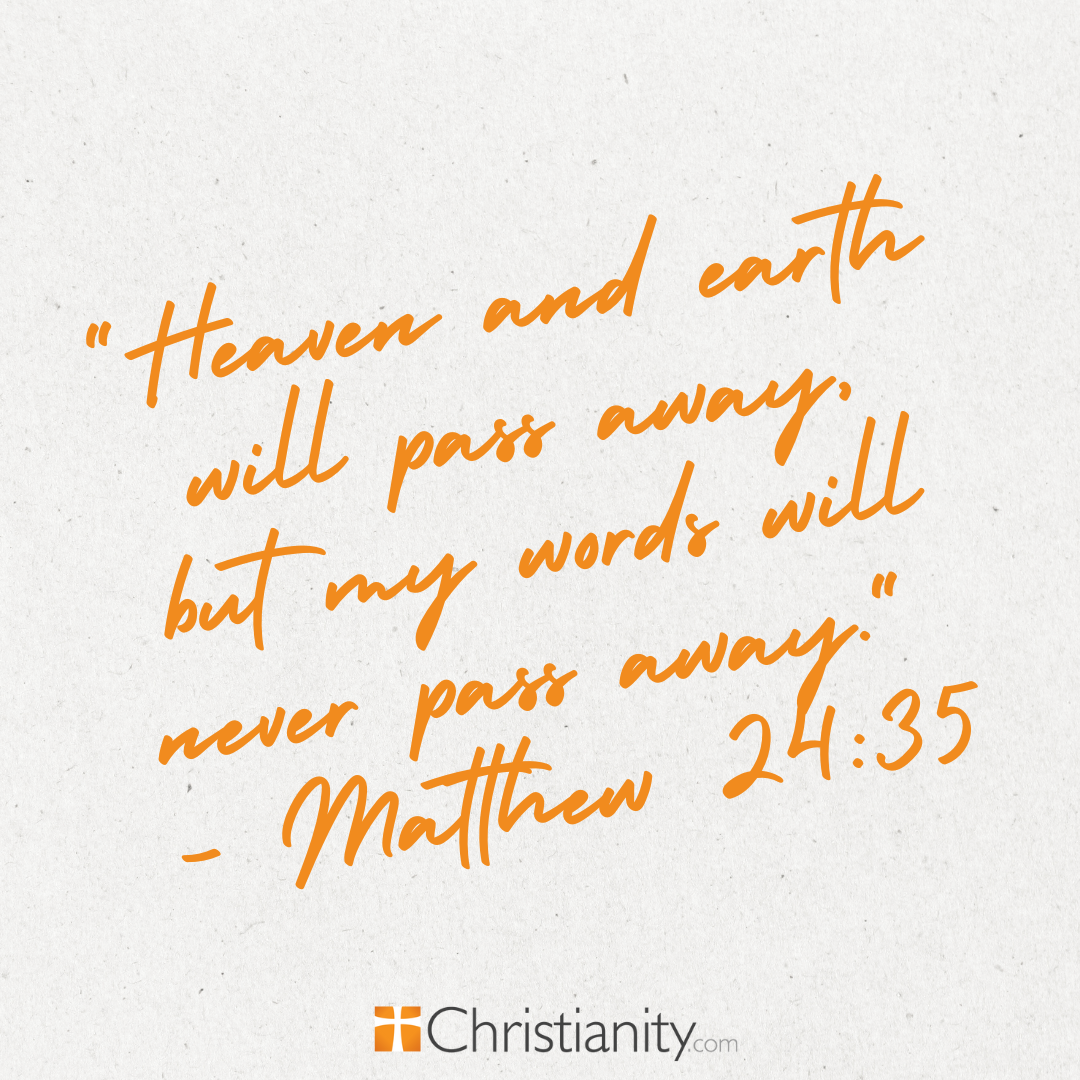 "Heaven and earth
will pass away,
but my words will
never pass away."
- Matthew 24:35
Christianity.com